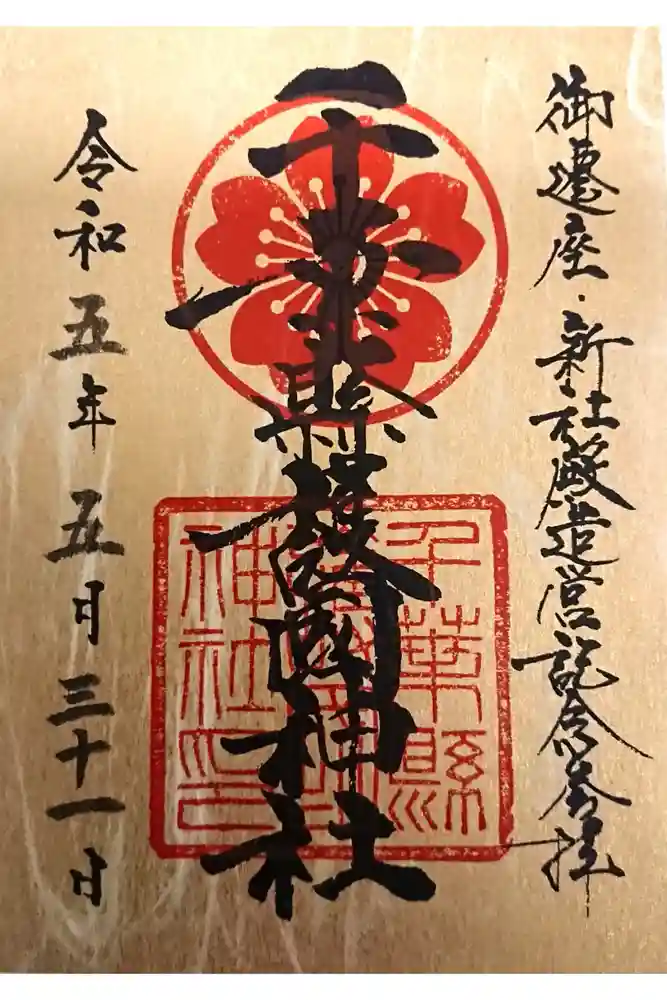 御遷座・新社殿造営記念参拝
千葉縣護國神社
千葉縣
護國
神社印
令和五年五月三十一日